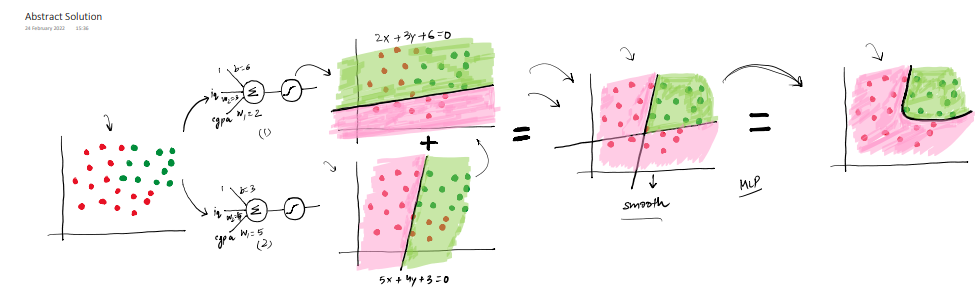 Abstract Solution
24 February 2022 15:36
2x + 3y + 6 = 0
1 b=6
iq w₂=3
Σ
cgpa w₁=2
(1)
+
=
=
1 b=3
iq
Σ
cgpa w₁=5
(2)
5x + 4y + 3 = 0
smooth
MLP